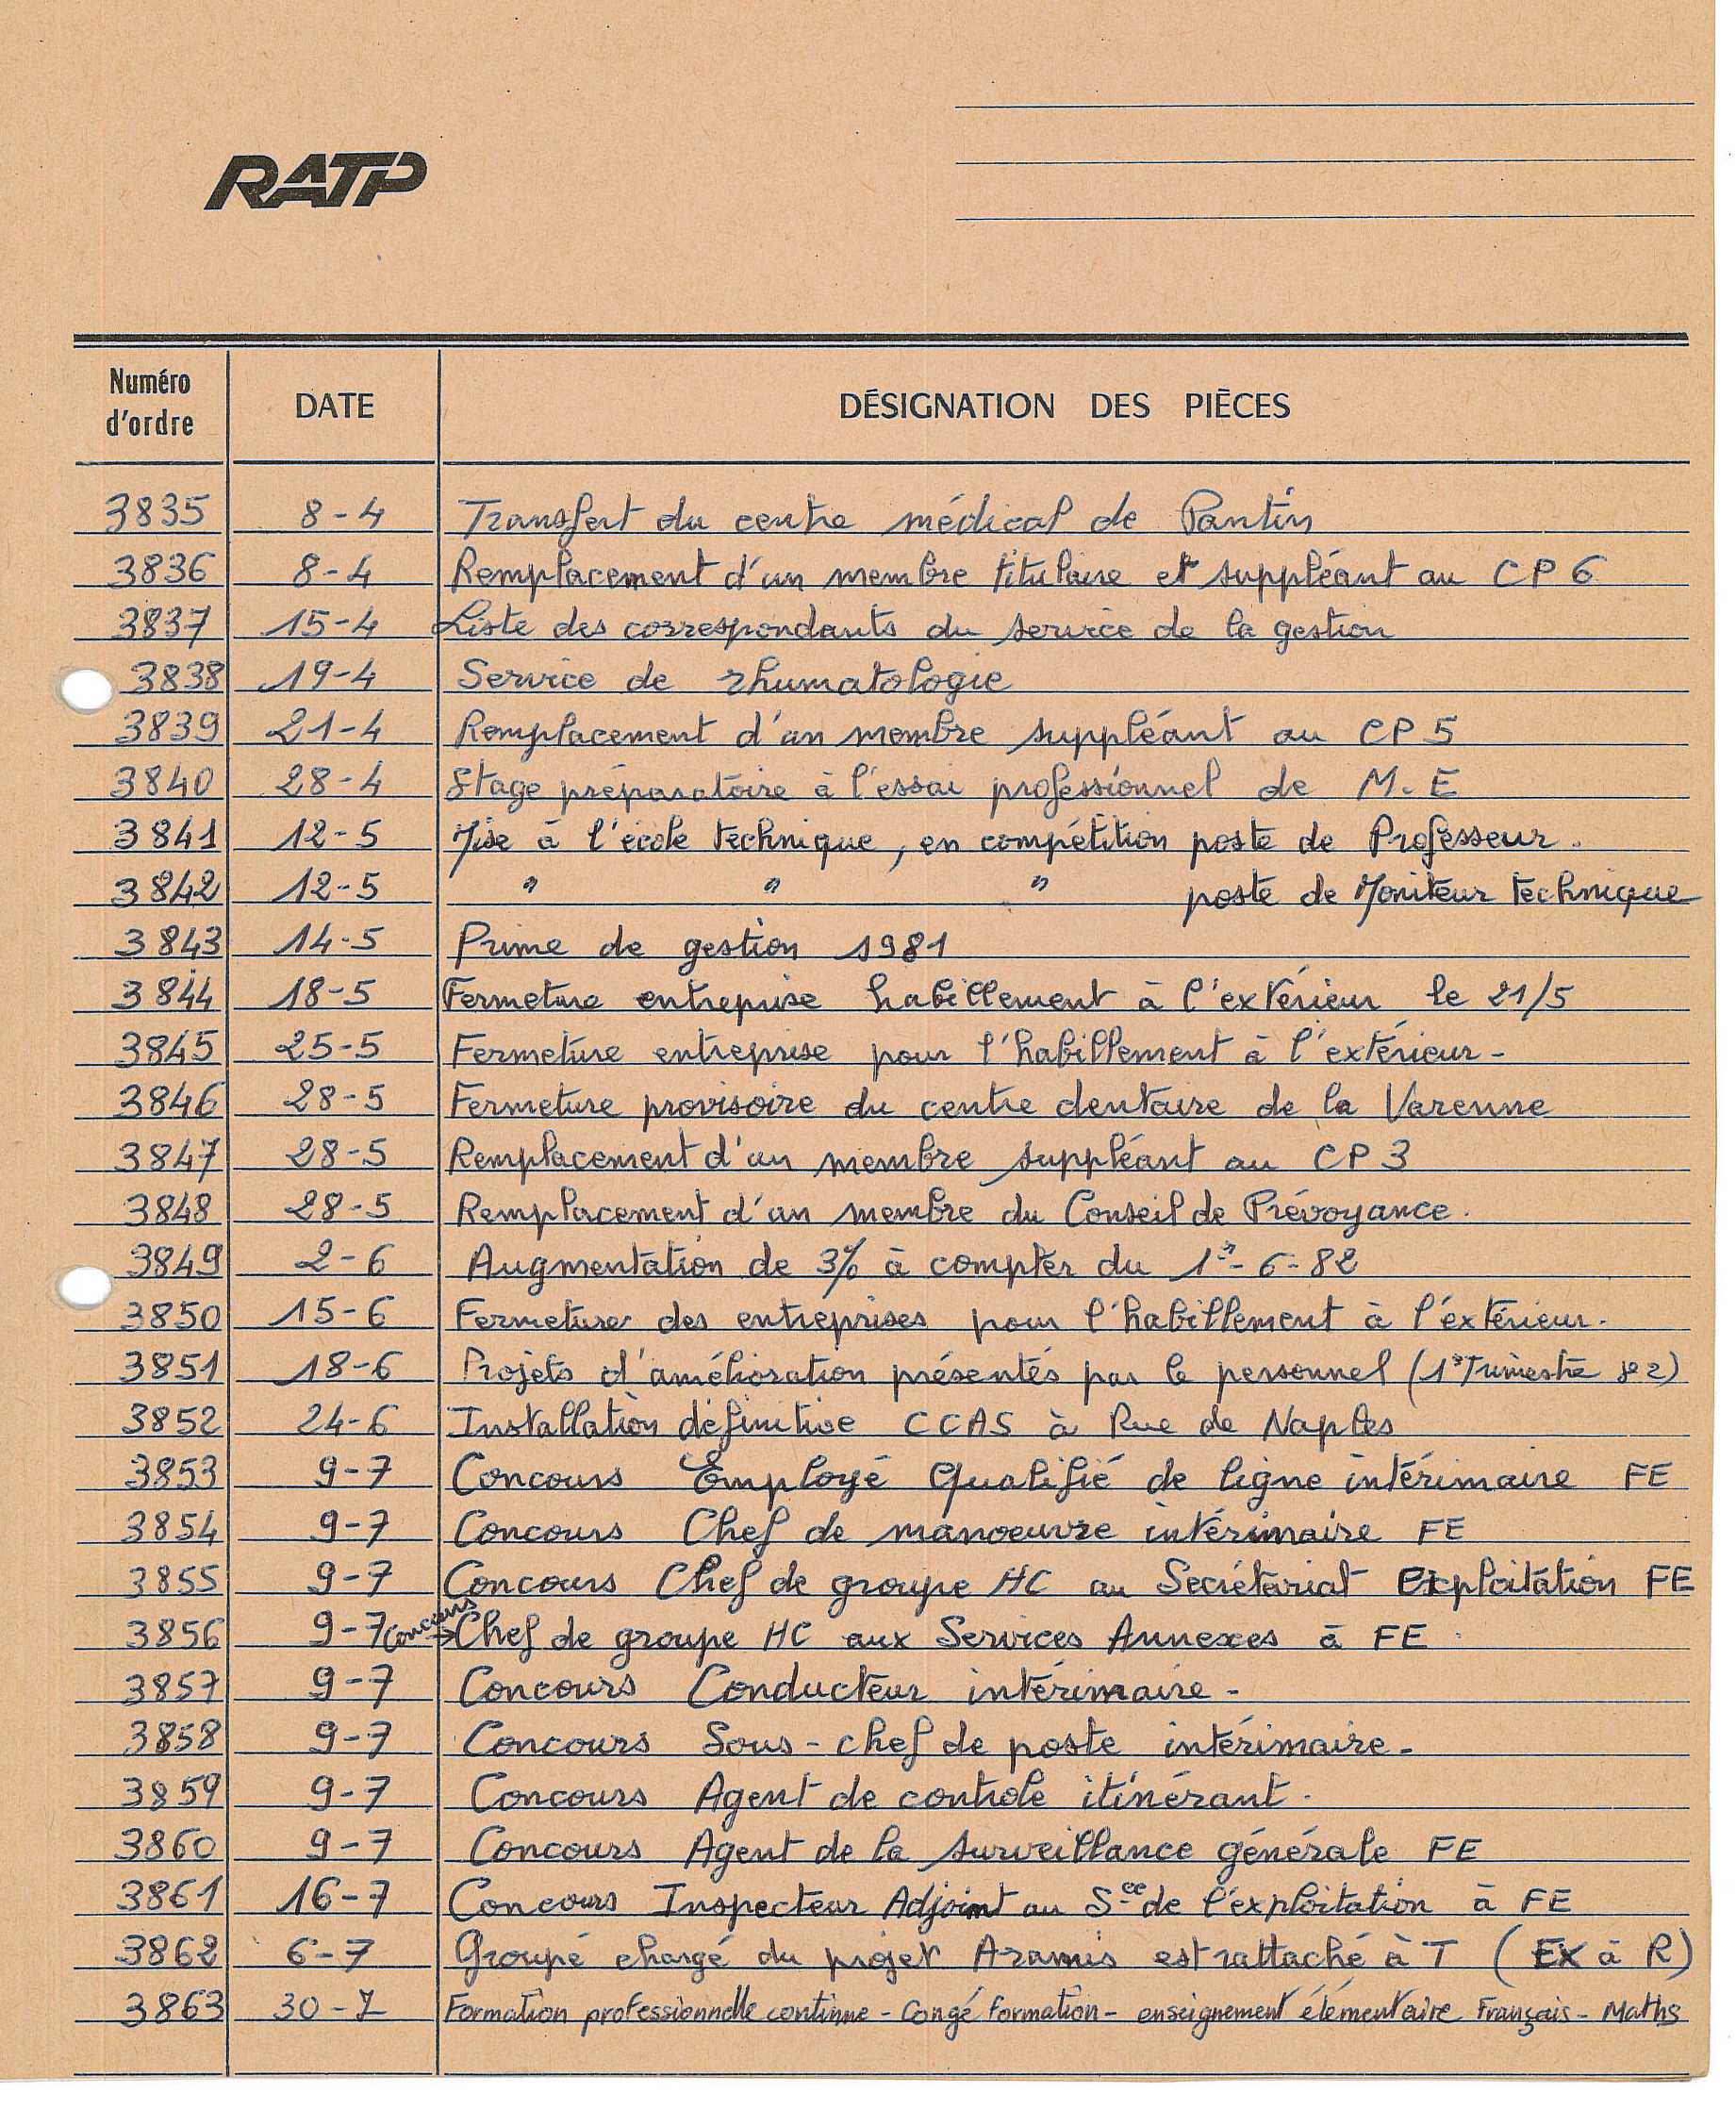 RATP
Numéro d'ordre DATE DÉSIGNATION DES PIÈCES
3835 8-4 Transfert du centre médical de Pantin
3836 8-4 Remplacement d'un membre titulaire et suppléant au CP 6
3837 15-4 Liste des correspondants du service de la gestion
3838 19-4 Service de rhumatologie
3839 21-4 Remplacement d'un membre suppléant au CP 5
3840 28-4 Stage préparatoire à l'essai professionnel de M. E
3841 12-5 Mise à l'école technique, en compétition poste de Professeur.
3842 12-5 " " " poste de Moniteur technique
3843 14-5 Prime de gestion 1981
3844 18-5 Fermeture entreprise habillement à l'extérieur le 21/5
3845 25-5 Fermeture entreprise pour l'habillement à l'extérieur-
3846 28-5 Fermeture provisoire du centre dentaire de la Varenne
3847 28-5 Remplacement d'un membre suppléant au CP 3
3848 28-5 Remplacement d'un membre du Conseil de Prévoyance.
3849 2-6 Augmentation de 3% à compter du 1er-6-82
3850 15-6 Fermetures des entreprises pour l'habillement à l'extérieur.
3851 18-6 Projets d'amélioration présentés par le personnel (1er Trimestre 82)
3852 24-6 Installation définitive CCAS à Rue de Naples
3853 9-7 Concours Employé Qualifié de ligne intérimaire FE
3854 9-7 Concours Chef de manoeuvre intérimaire FE
3855 9-7 Concours Chef de groupe HC au Secrétariat Exploitation FE
3856 9-7 Concours → Chef de groupe HC aux Services Annexes à FE.
3857 9-7 Concours Conducteur intérimaire-
3858 9-7 Concours Sous-chef de poste intérimaire-
3859 9-7 Concours Agent de controle itinérant.
3860 9-7 Concours Agent de la surveillance générale FE
3861 16-7 Concours Inspecteur Adjoint au Sce de l'exploitation à FE
3862 6-7 Groupe chargé du projet Aramis est rattaché à T (Ex à R)
3863 30-7 Formation professionnelle continue - Congé formation - enseignement élémentaire Français - Maths